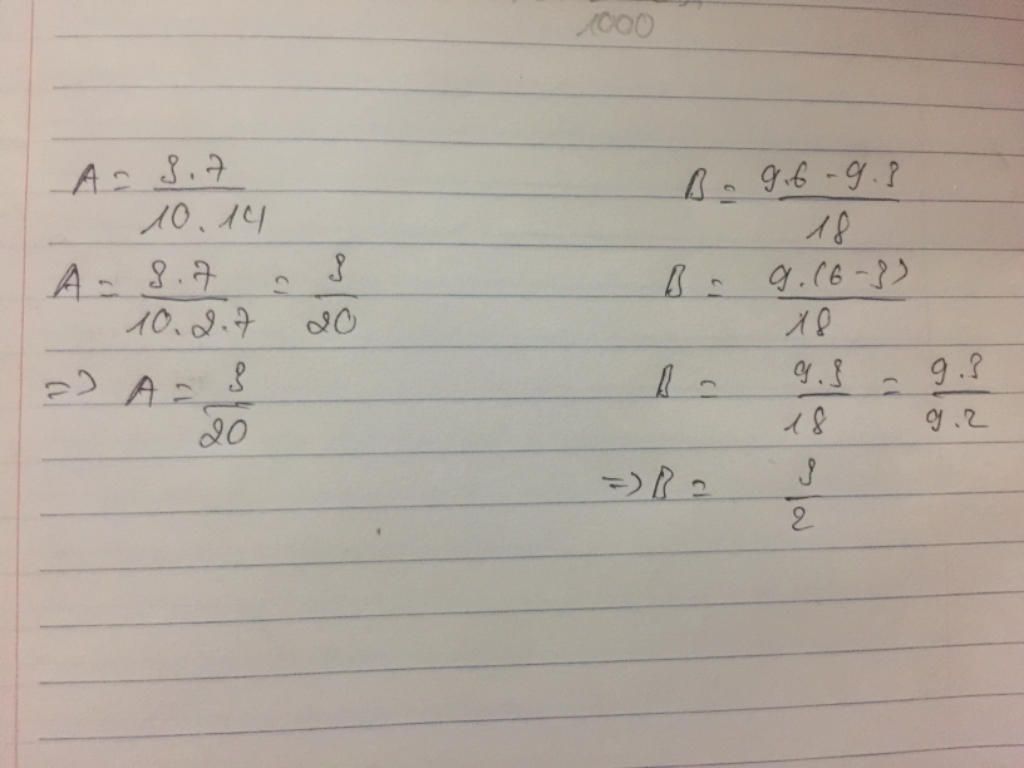 1000
A = 3.7 / 10.14
A = 3.7 / 10.2.7 = 3 / 20
=> A = 3 / 20
B = 9.6 - 9.3 / 18
B = 9.(6 - 3) / 18
B = 9.3 / 18 = 9.3 / 9.2
=> B = 3 / 2